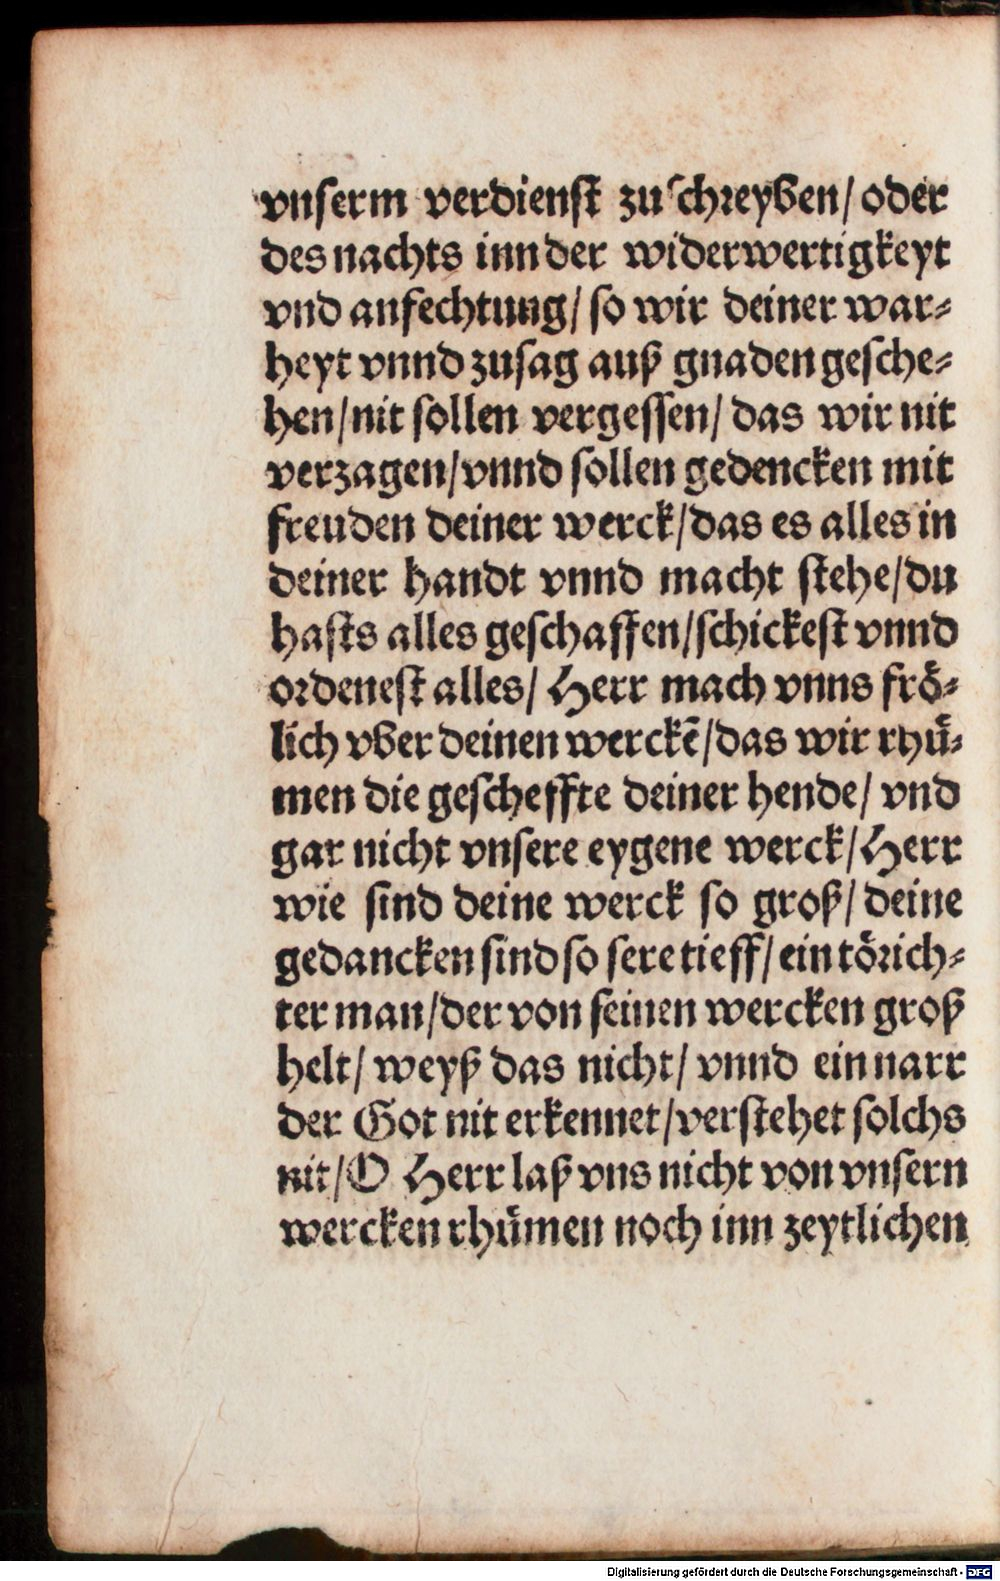 vnserm verdienst zuschreyben/ oder
des nachts inn der widerwertigkeyt
vnd anfechtung/ so wir deiner war⸗
heyt vnnd zusag auß gnaden gesche⸗
hen/nit sollen vergessen/ das wir nit
verzagen/vnnd sollen gedencken mit
freuden deiner werck/das es alles in
deiner handt vnnd macht stehe/du
hasts alles geschaffen/schickest vnnd
ordenest alles/ Herr mach vnns froͤ⸗
lich vber deinen werckē/das wir rhuͤ⸗
men die gescheffte deiner hende/ vnd
gar nicht vnsere eygene werck/Herr
wie sind deine werck so groß/ deine
gedancken sind so sere tieff/ ein toͤrich⸗
ter man/der von seinen wercken groß
helt/ weyß das nicht/ vnnd ein narr
der Got nit erkennet/verstehet solchs
nit/O Herr laß vns nicht von vnsern
wercken rhuͤmen noch inn zeytlichen
Digitalisierung gefördert durch die Deutsche Forschungsgemeinschaft - DFG